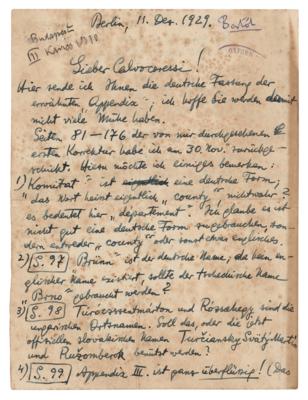 Berlin, 11. Dez. 1929.
Bartók
Budapest
III
OXFORD
Lieber Calvocoressi!
Hier sende ich Ihnen die deutsche Fassung der
erwähnten Appendix; ich hoffe Sie werden damit
nicht viel Mühe haben.
Seiten 81-176 der von mir durchgesehenen
ersten Korrektur habe ich am 30. Nov. zurückge-
schickt. Hierzu möchte ich einiges bemerken:
1) „Komitat" ist eigentlich eine deutsche Form;
das Wort heisst eigentlich „county" nichtwahr?
es bedeutet hier „departement". Ich glaube es ist
nicht gut eine deutsche Form zu gebrauchen, son-
dern entweder „county" oder sonst etwas englisches.
2) S. 97 „Brünn" ist der deutsche Name; da kein en-
glischer Name existirt, sollte der tschechische Name
„Brno" gebraucht werden?
3) S. 98 Turócszentmárton und Rózsahegy sind die
ungarischen Ortsnamen. Soll das, oder die jetzt
offiziellen slovakischen Namen Turčiansky Svätý Mart.
und Ružomberok benützt werden?
4) S. 99 Appendix III. ist ganz überflüssig! (Das